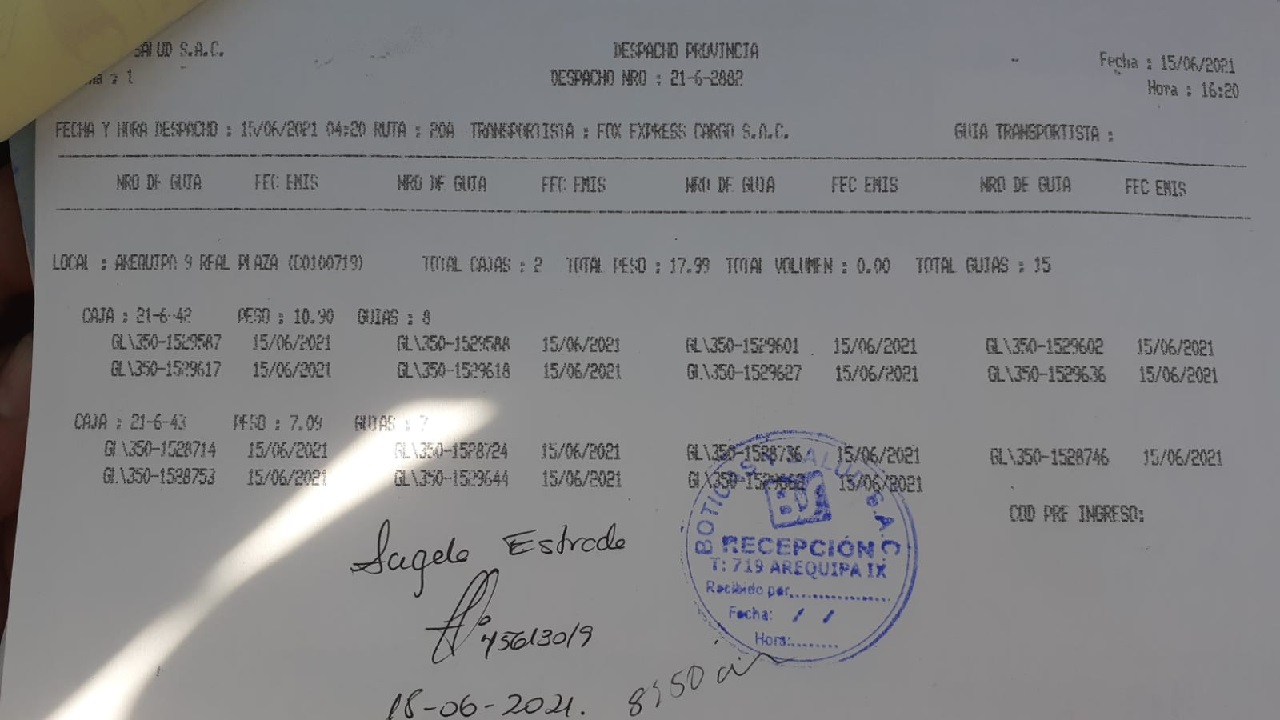 SALUD S.A.C. DESPACHO PROVINCIA Fecha : 15/06/2021
: 1 DESPACHO NRO : 21-6-2882 Hora : 16:20
FECHA Y HORA DESPACHO : 15/06/2021 04:20 RUTA : 20A TRANSPORTISTA : FOX EXPRESS CARGO S.A.C. GUIA TRANSPORTISTA :
NRO DE GUIA FEC EMIS NRO DE GUIA FEC EMIS NRO DE GUIA FEC EMIS NRO DE GUIA FEC EMIS
LOCAL : AREQUIPA 9 REAL PLAZA (C0100719) TOTAL CAJAS : 2 TOTAL PESO : 17.99 TOTAL VOLUMEN : 0.00 TOTAL GUIAS : 15
CAJA : 21-6-42 PESO : 10.90 GUIAS : 8
GL\350-1529587 15/06/2021 GL\350-1529588 15/06/2021 GL\350-1529601 15/06/2021 GL\350-1529602 15/06/2021
GL\350-1529617 15/06/2021 GL\350-1529618 15/06/2021 GL\350-1529627 15/06/2021 GL\350-1529636 15/06/2021
CAJA : 21-6-43 PESO : 7.09 GUIAS : 7
GL\350-1528714 15/06/2021 GL\350-1528724 15/06/2021 GL\350-1528736 15/06/2021 GL\350-1528746 15/06/2021
GL\350-1528753 15/06/2021 GL\350-1529644 15/06/2021 15/06/2021
COD PRE INGRESO:
BOTICAS Y SALUD S.A.C.
BS
RECEPCIÓN
T: 719 AREQUIPA IX
Recibido por..................
Fecha: / /
Hora:........
Estrada
45613019
15-06-2021.